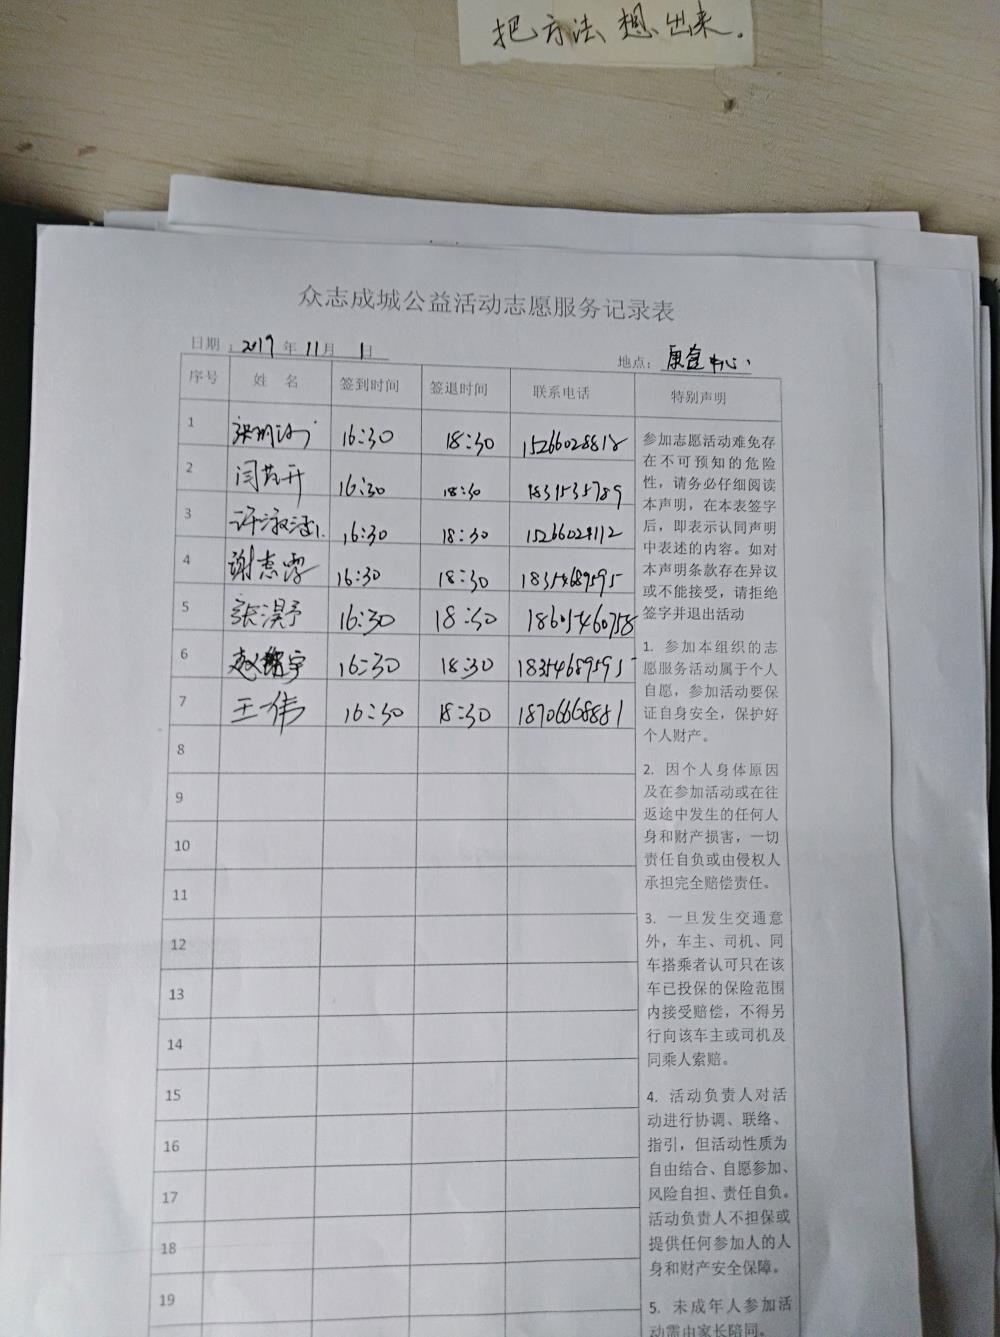 把方法想出来.
众志成城公益活动志愿服务记录表
日期：2019年11月1日
地点：康复中心
序号 姓 名 签到时间 签退时间 联系电话 特别声明
1 16:30 18:30 15266028818
2 16:30 18:30
3 16:30 18:30
4 谢志霞 16:30 18:30 18354689595
5 张淏予 16:30 18:30 18605460758
6 16:30 18:30 18354689595
7 王伟 16:30 18:30 18706668881
8
9
10
11
12
13
14
15
16
17
18
19
参加志愿活动难免存
在不可预知的危险
性，请务必仔细阅读
本声明，在本表签字
后，即表示认同声明
中表述的内容。如对
本声明条款存在异议
或不能接受，请拒绝
签字并退出活动
1. 参加本组织的志
愿服务活动属于个人
自愿，参加活动要保
证自身安全，保护好
个人财产。
2. 因个人身体原因
及在参加活动或在往
返途中发生的任何人
身和财产损害，一切
责任自负或由侵权人
承担完全赔偿责任。
3. 一旦发生交通意
外，车主、司机、同
车搭乘者认可只在该
车已投保的保险范围
内接受赔偿，不得另
行向该车主或司机及
同乘人索赔。
4. 活动负责人对活
动进行协调、联络、
指引，但活动性质为
自由结合、自愿参加、
风险自担、责任自负。
活动负责人不担保或
提供任何参加人的人
身和财产安全保障。
5. 未成年人参加活
动需由家长陪同。